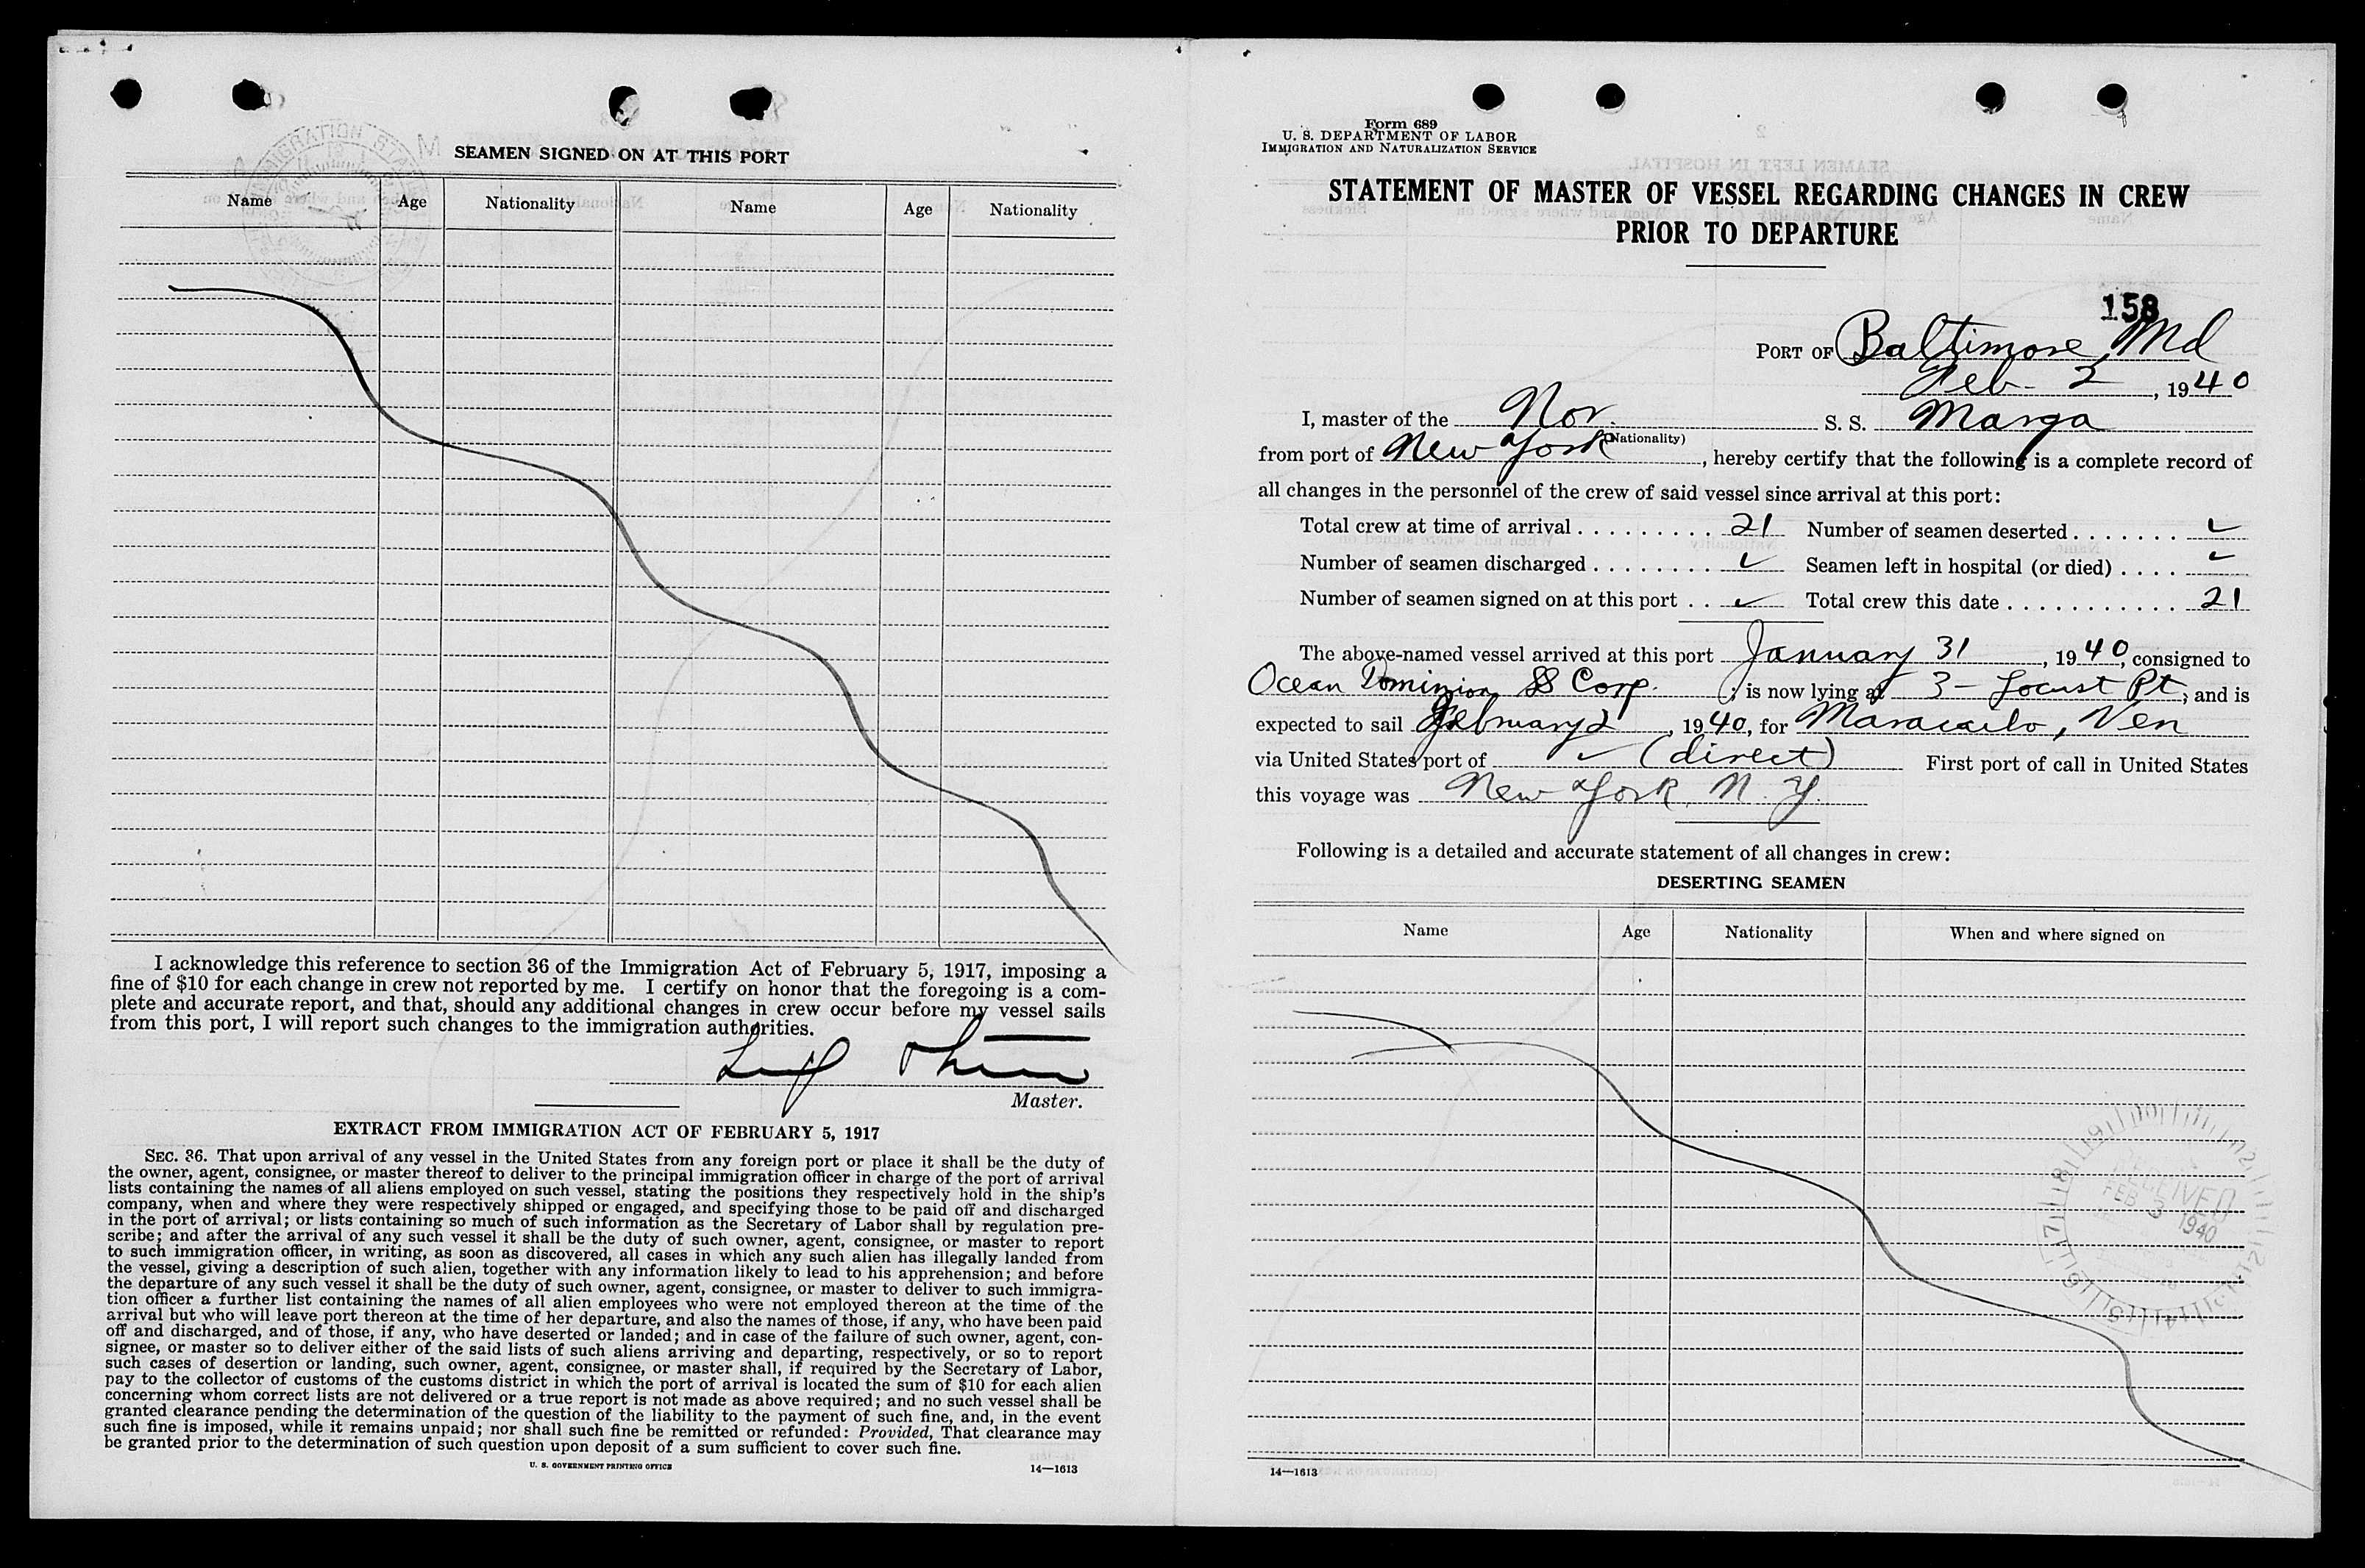 SEAMEN SIGNED ON AT THIS PORT
Name Age Nationality Name Age Nationality
I acknowledge this reference to section 36 of the Immigration Act of February 5, 1917, imposing a
fine of $10 for each change in crew not reported by me. I certify on honor that the foregoing is a com-
plete and accurate report, and that, should any additional changes in crew occur before my vessel sails
from this port, I will report such changes to the immigration authorities.
Master.
EXTRACT FROM IMMIGRATION ACT OF FEBRUARY 5, 1917
SEC. 36. That upon arrival of any vessel in the United States from any foreign port or place it shall be the duty of
the owner, agent, consignee, or master thereof to deliver to the principal immigration officer in charge of the port of arrival
lists containing the names of all aliens employed on such vessel, stating the positions they respectively hold in the ship's
company, when and where they were respectively shipped or engaged, and specifying those to be paid off and discharged
in the port of arrival; or lists containing so much of such information as the Secretary of Labor shall by regulation pre-
scribe; and after the arrival of any such vessel it shall be the duty of such owner, agent, consignee, or master to report
to such immigration officer, in writing, as soon as discovered, all cases in which any such alien has illegally landed from
the vessel, giving a description of such alien, together with any information likely to lead to his apprehension; and before
the departure of any such vessel it shall be the duty of such owner, agent, consignee, or master to deliver to such immigra-
tion officer a further list containing the names of all alien employees who were not employed thereon at the time of the
arrival but who will leave port thereon at the time of her departure, and also the names of those, if any, who have been paid
off and discharged, and of those, if any, who have deserted or landed; and in case of the failure of such owner, agent, con-
signee, or master so to deliver either of the said lists of such aliens arriving and departing, respectively, or so to report
such cases of desertion or landing, such owner, agent, consignee, or master shall, if required by the Secretary of Labor,
pay to the collector of customs of the customs district in which the port of arrival is located the sum of $10 for each alien
concerning whom correct lists are not delivered or a true report is not made as above required; and no such vessel shall be
granted clearance pending the determination of the question of the liability to the payment of such fine, and, in the event
such fine is imposed, while it remains unpaid; nor shall such fine be remitted or refunded: Provided, That clearance may
be granted prior to the determination of such question upon deposit of a sum sufficient to cover such fine.
U. S. GOVERNMENT PRINTING OFFICE 14—1613
Form 689
U. S. DEPARTMENT OF LABOR
IMMIGRATION AND NATURALIZATION SERVICE
STATEMENT OF MASTER OF VESSEL REGARDING CHANGES IN CREW
PRIOR TO DEPARTURE
158
PORT OF Baltimore, Md
Feb- 2, 1940
I, master of the Nor. S. S. Marga
(Nationality)
from port of New York, hereby certify that the following is a complete record of
all changes in the personnel of the crew of said vessel since arrival at this port:
Total crew at time of arrival . . . . . . . . . 21 Number of seamen deserted . . . . . . . ✓
Number of seamen discharged . . . . . . . . ✓ Seamen left in hospital (or died) . . . . ✓
Number of seamen signed on at this port . . ✓ Total crew this date . . . . . . . . . . . 21
The above-named vessel arrived at this port January 31, 1940, consigned to
Ocean Dominion SS Corp.; is now lying at 3 - Locust Pt, and is
expected to sail February 2, 1940, for Maracaibo, Ven
via United States port of ✓ (direct) First port of call in United States
this voyage was New York, N. Y.
Following is a detailed and accurate statement of all changes in crew:
DESERTING SEAMEN
Name Age Nationality When and where signed on
RECEIVED
FEB 3 1940
14—1613